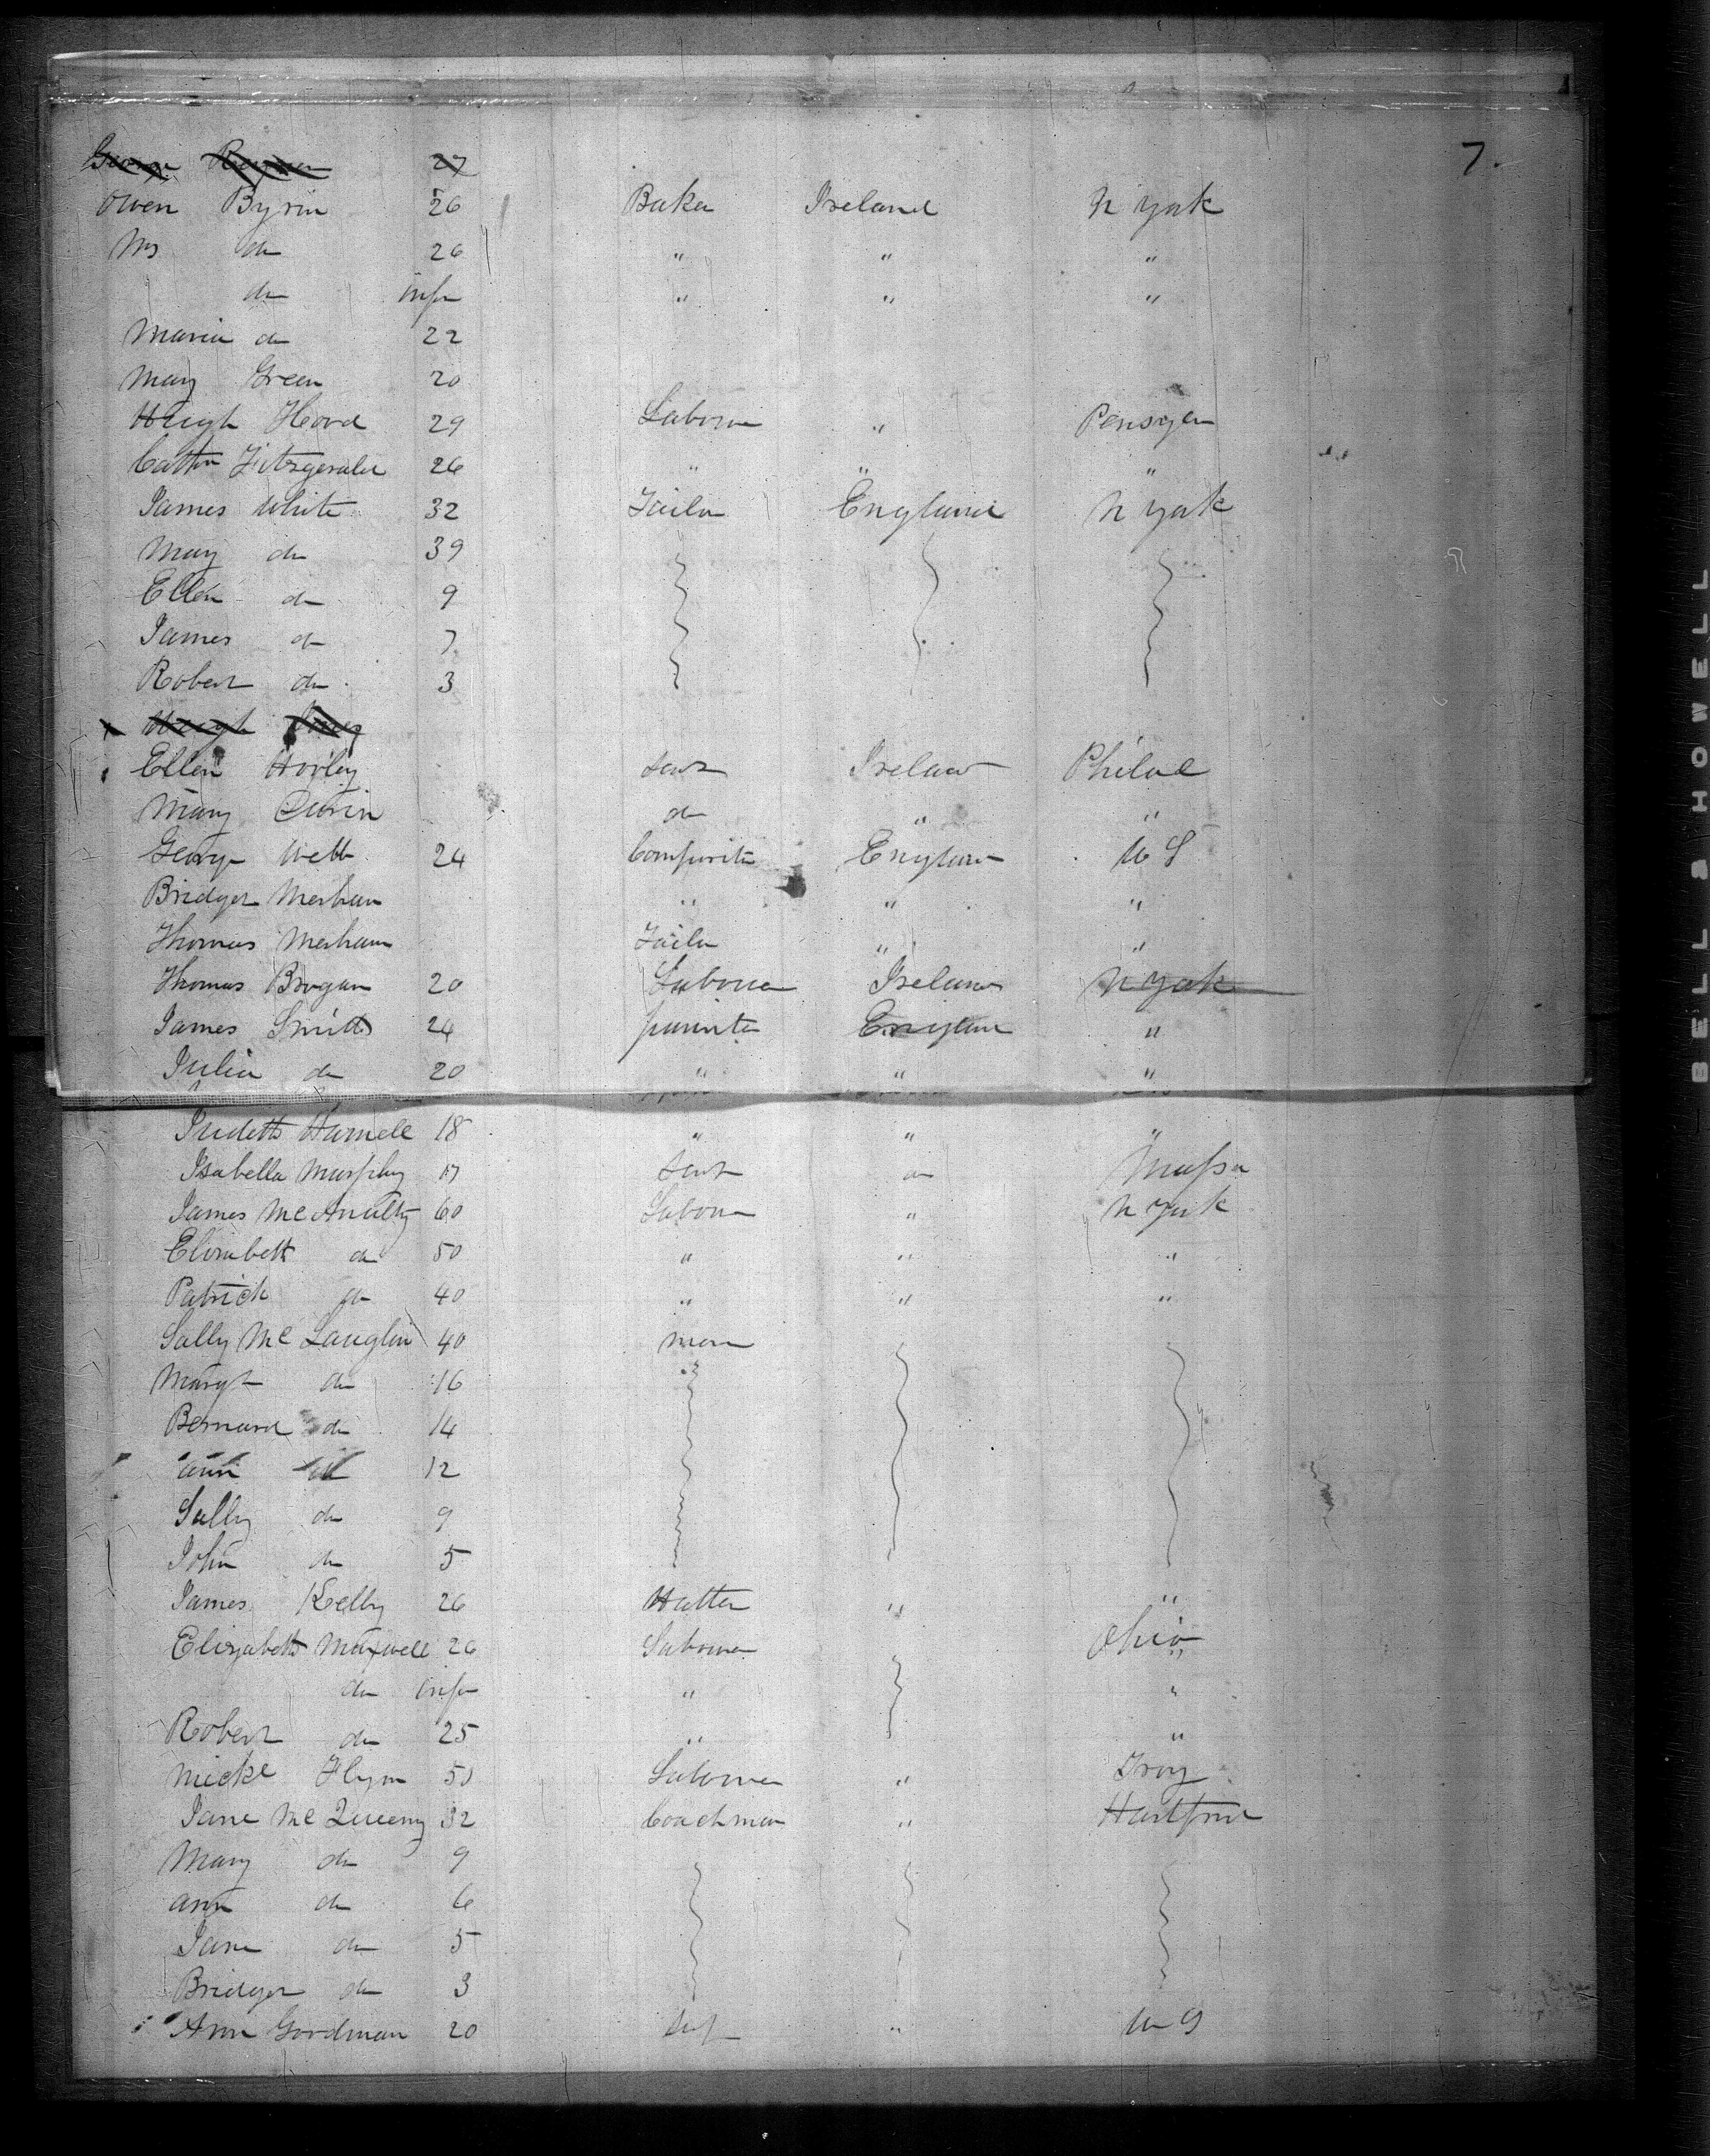 7.
George 27
Owen Byrin 26 Baker Ireland N York
Mrs do 26 " " "
do Infn " " "
Maria do 22
Mary Green 20
Hugh Hood 29 Labour " Pensyn
Cathn Fitzgerald 26 " " "
James White 32 Tailor England N York
Mary do 39
Ellen do 9
James do 7
Robert do 3
Hugh
Ellen Horley Sert Ireland Philad
Mary Curin do " "
George Webb 24 Compositr England U S
Bridget Meehan " " "
Thomas Meehan Tailor " "
Thomas Brogan 20 Labourer Ireland N York
James Smith 24 painter England "
Julia do 20 " " "
Judeth Hamell 18 " " "
Isabella Murphy 17 Sert do Massa
James McAnulty 60 Labour " N York
Elizabeth do 50 " " "
Patrick do 40 " " "
Sally Mc Lauglin 40 none
Margt do 16
Bernard do 14
Ann do 12
Sally do 9
John do 5
James Kelly 26 Hatter " "
Elizabeth Maxwell 26 Labourer Ohio "
do Infn " "
Robert do 25 " "
Mickl Flynn 50 Labourer " Troy
Jane Mc Queeny 32 Coachman " Hartford
Mary do 9
Ann do 6
Jane do 5
Bridget do 3
Ann Goodman 20 "